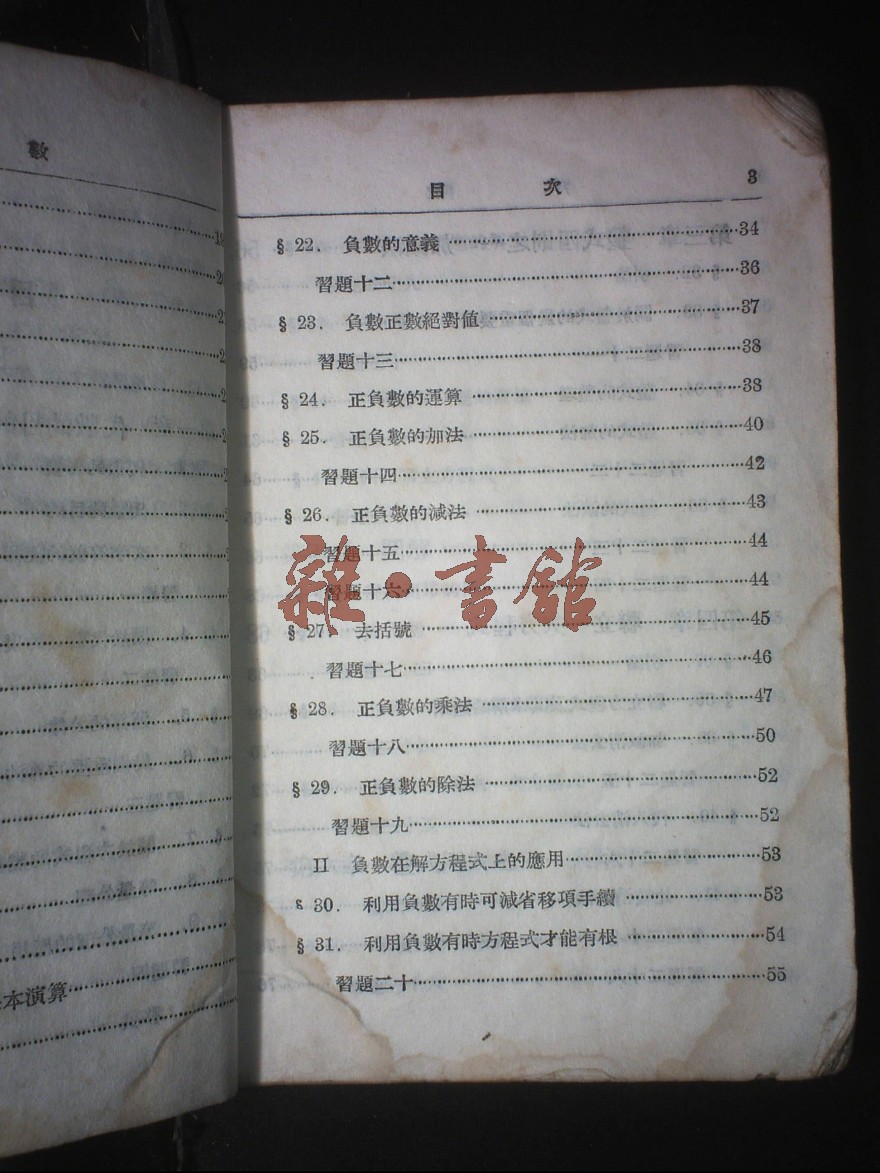 數
本演算
目 次 3
§ 22. 負數的意義 34
習題十二 36
§ 23. 負數正數絕對值 37
習題十三 38
§ 24. 正負數的運算 38
§ 25. 正負數的加法 40
習題十四 42
§ 26. 正負數的減法 43
習題十五 44
習題十六 44
§ 27. 去括號 45
習題十七 46
§ 28. 正負數的乘法 47
習題十八 50
§ 29. 正負數的除法 52
習題十九 52
II 負數在解方程式上的應用 53
§ 30. 利用負數有時可減省移項手續 53
§ 31. 利用負數有時方程式才能有根 54
習題二十 55
雜·書舘